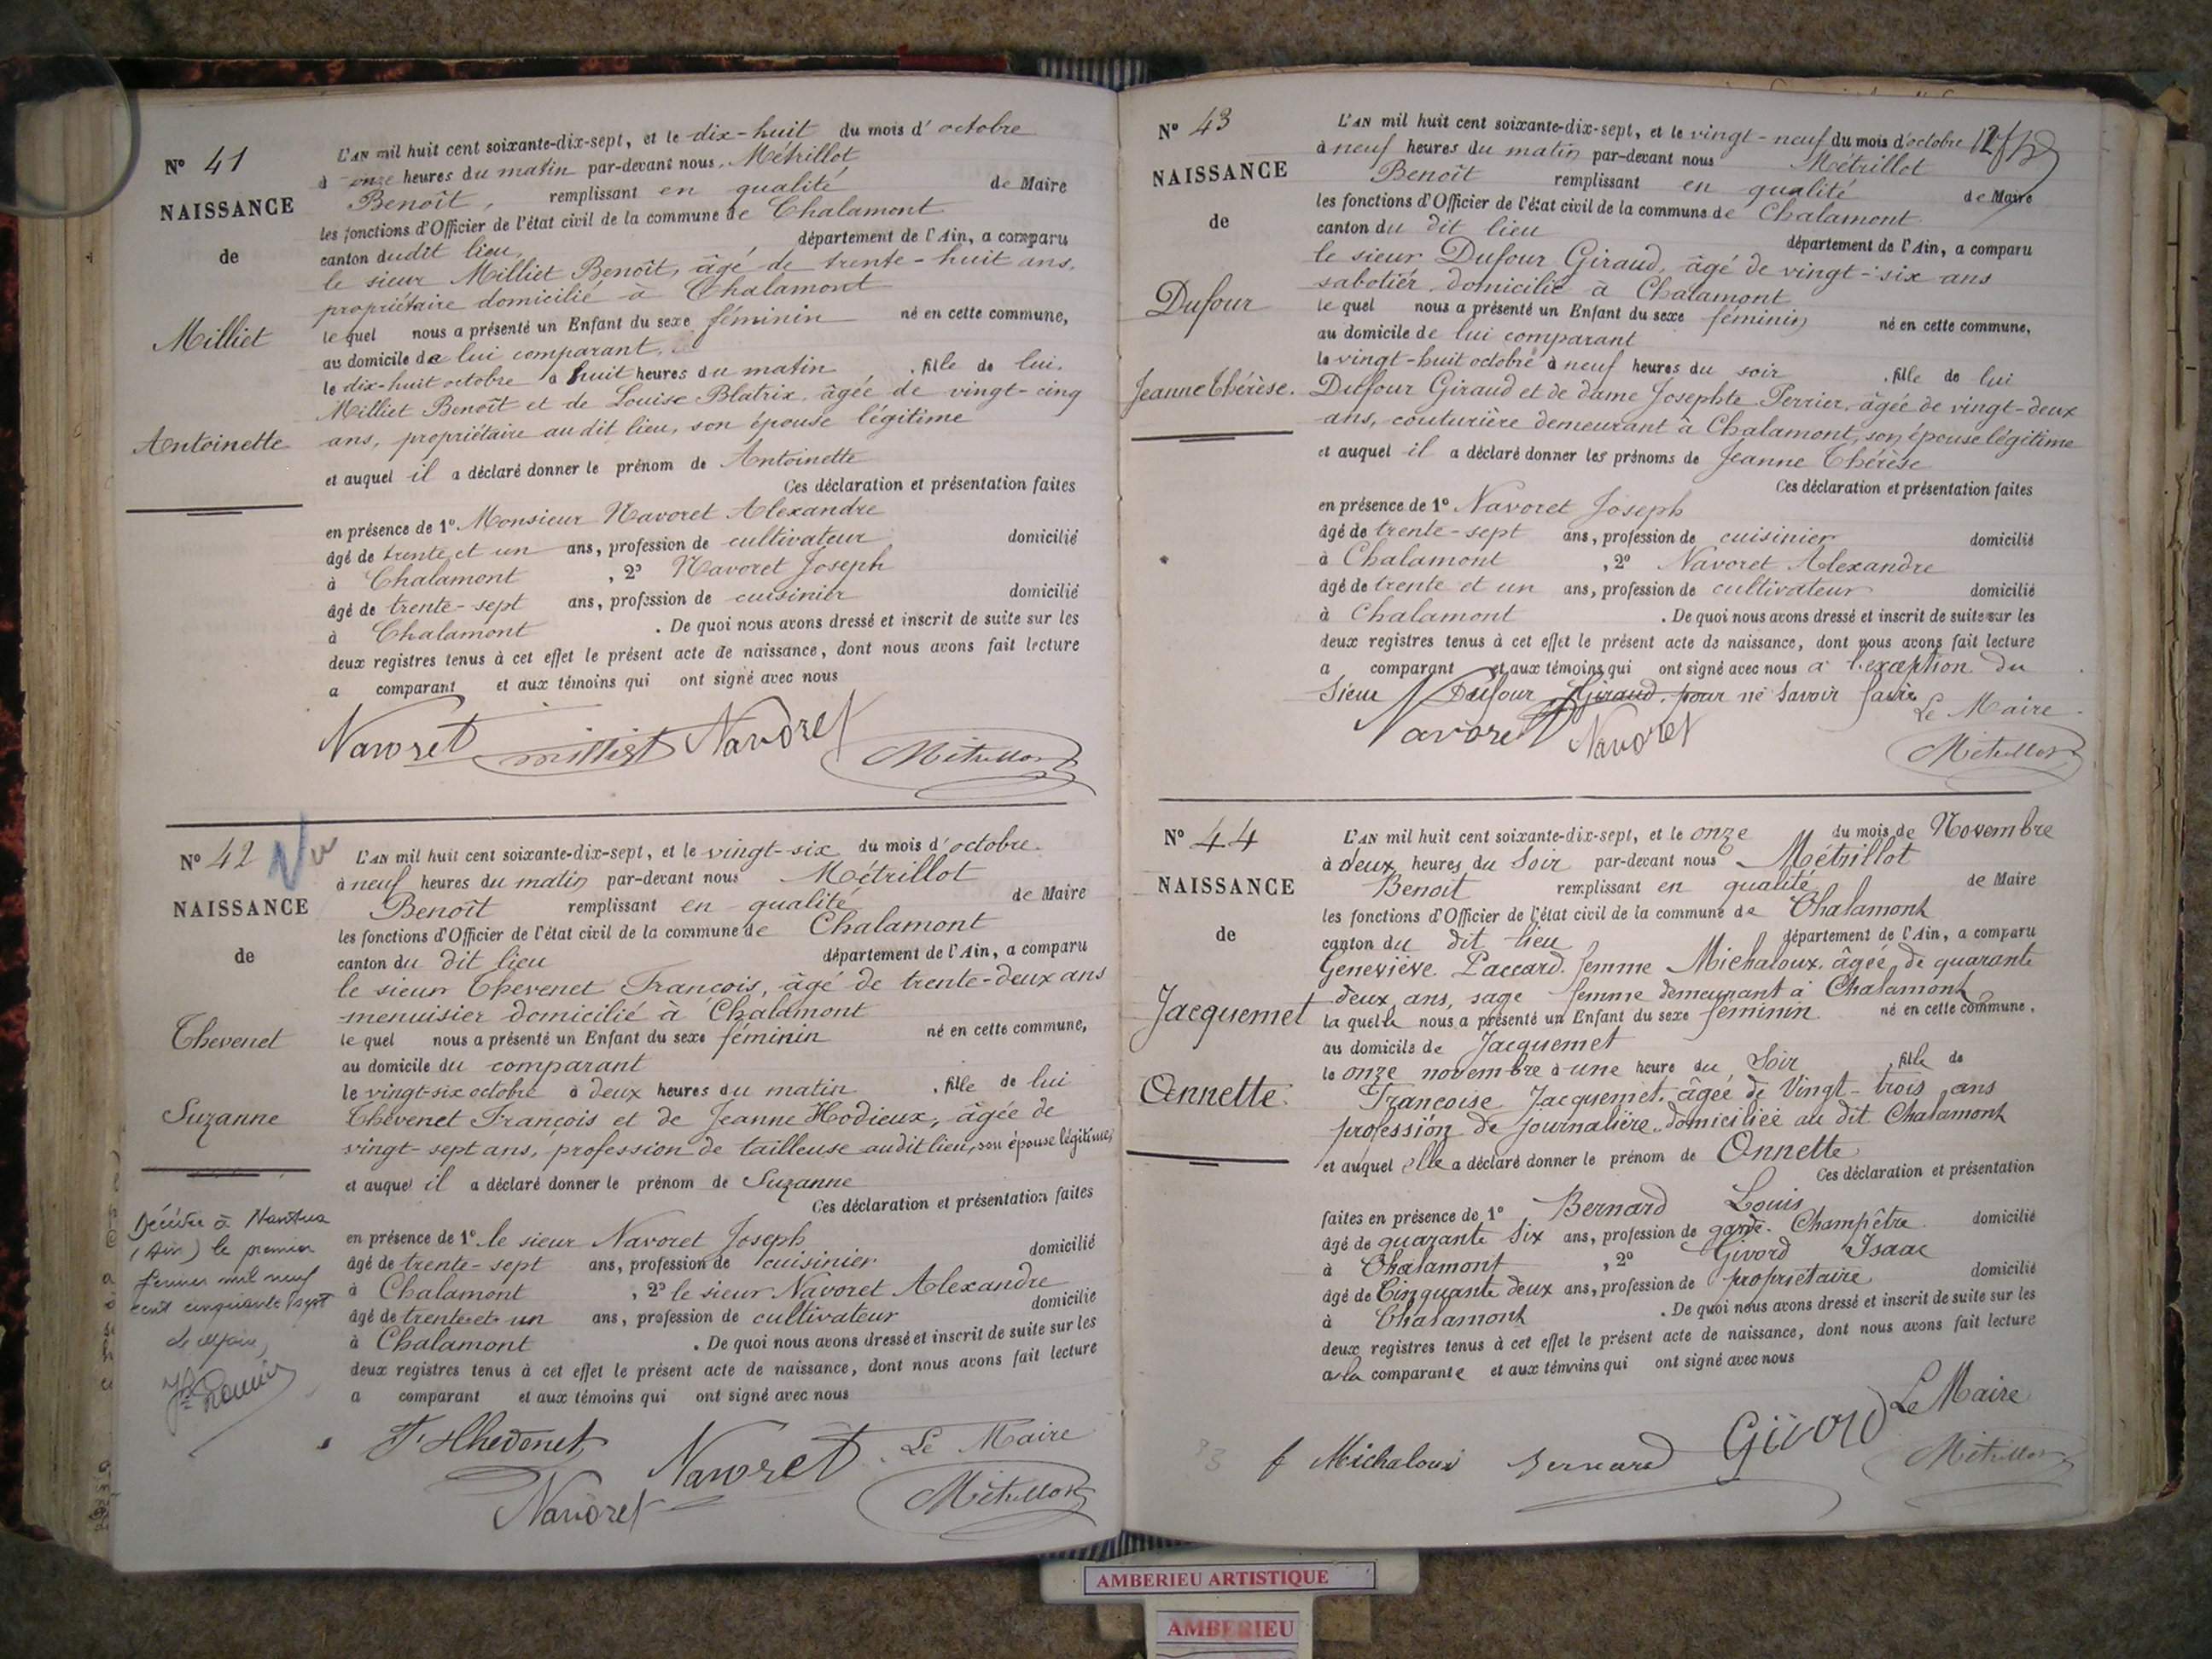 N° 41
NAISSANCE
de
Milliet
Antoinette
L'AN mil huit cent soixante-dix-sept, et le dix-huit du mois d'octobre
à onze heures du matin par-devant nous, Métrillot
Benoît, remplissant en qualité de Maire
les fonctions d'Officier de l'état civil de la commune de Chalamont
canton dudit lieu, département de l'Ain, a comparu
le sieur Milliet Benoît, âgé de trente-huit ans,
propriétaire domicilié à Chalamont
lequel nous a présenté un Enfant du sexe féminin né en cette commune,
au domicile de lui comparant,
le dix-huit octobre à huit heures du matin, fille de lui.
Milliet Benoît et de Louise Blatrix, âgée de vingt-cinq
ans, propriétaire au dit lieu, son épouse légitime
et auquel il a déclaré donner le prénom de Antoinette
Ces déclaration et présentation faites
en présence de 1° Monsieur Navoret Alexandre
âgé de trente et un ans, profession de cultivateur domicilié
à Chalamont, 2° Navoret Joseph
âgé de trente-sept ans, profession de cuisinier domicilié
à Chalamont. De quoi nous avons dressé et inscrit de suite sur les
deux registres tenus à cet effet le présent acte de naissance, dont nous avons fait lecture
a comparant et aux témoins qui ont signé avec nous
Navoret milliet Navoret Métrillot
N° 42 Vu
NAISSANCE
de
Thevenet
Suzanne
Décédée à Nantua
(Ain) le premier
février mil neuf
cent cinquante sept
Le Maire,
L'AN mil huit cent soixante-dix-sept, et le vingt-six du mois d'octobre
à neuf heures du matin par-devant nous Métrillot
Benoît remplissant en qualité de Maire
les fonctions d'Officier de l'état civil de la commune de Chalamont
canton du dit lieu département de l'Ain, a comparu
le sieur Thevenet François, âgé de trente-deux ans
menuisier domicilié à Chalamont
lequel nous a présenté un Enfant du sexe féminin né en cette commune,
au domicile du comparant
le vingt-six octobre à deux heures du matin, fille de lui
Thevenet François et de Jeanne Hodieux, âgée de
vingt-sept ans, profession de tailleuse audit lieu, son épouse légitime,
et auquel il a déclaré donner le prénom de Suzanne
Ces déclaration et présentation faites
en présence de 1° le sieur Navoret Joseph
âgé de trente-sept ans, profession de cuisinier domicilié
à Chalamont, 2° le sieur Navoret Alexandre
âgé de trente et un ans, profession de cultivateur domicilié
à Chalamont. De quoi nous avons dressé et inscrit de suite sur les
deux registres tenus à cet effet le présent acte de naissance, dont nous avons fait lecture
a comparant et aux témoins qui ont signé avec nous
F. Thevenet Navoret Le Maire
Navoret Métrillot
N° 43
NAISSANCE
de
Dufour
Jeanne Thérèse.
L'AN mil huit cent soixante-dix-sept, et le vingt-neuf du mois d'octobre
à neuf heures du matin par-devant nous Métrillot
Benoît remplissant en qualité de Maire
les fonctions d'Officier de l'état civil de la commune de Chalamont
canton du dit lieu département de l'Ain, a comparu
le sieur Dufour Giraud, âgé de vingt-six ans
sabotier domicilié à Chalamont
lequel nous a présenté un Enfant du sexe féminin né en cette commune,
au domicile de lui comparant
le vingt-huit octobre à neuf heures du soir, fille de lui
Dufour Giraud et de dame Josephte Perrier, âgée de vingt-deux
ans, couturière demeurant à Chalamont, son épouse légitime
et auquel il a déclaré donner les prénoms de Jeanne Thérèse
Ces déclaration et présentation faites
en présence de 1° Navoret Joseph
âgé de trente-sept ans, profession de cuisinier domicilié
à Chalamont, 2° Navoret Alexandre
âgé de trente et un ans, profession de cultivateur domicilié
à Chalamont. De quoi nous avons dressé et inscrit de suite sur les
deux registres tenus à cet effet le présent acte de naissance, dont nous avons fait lecture
a comparant et aux témoins qui ont signé avec nous à l'exception du
Sieur Dufour Giraud, pour ne savoir faire
Le Maire
Navoret Navoret Métrillot
N° 44
NAISSANCE
de
Jacquemet
Annette.
L'AN mil huit cent soixante-dix-sept, et le onze du mois de Novembre
à deux heures du Soir par-devant nous Métrillot
Benoit remplissant en qualité de Maire
les fonctions d'Officier de l'état civil de la commune de Chalamont
canton du dit lieu département de l'Ain, a comparu
Geneviève Paccard, femme Michaloux, âgée de quarante
deux ans, sage femme demeurant à Chalamont
laquelle nous a présenté un Enfant du sexe féminin né en cette commune,
au domicile de Jacquemet
le onze novembre à une heure du Soir, fille de
Françoise Jacquemet, âgée de Vingt-trois ans
profession de journalière, domiciliée au dit Chalamont
et auquel elle a déclaré donner le prénom de Annette
Ces déclaration et présentation
faites en présence de 1° Bernard Louis
âgé de quarante Six ans, profession de garde-Champêtre domicilié
à Chalamont, 2° Givord Isaac
âgé de Cinquante deux ans, profession de propriétaire domicilié
à Chalamont. De quoi nous avons dressé et inscrit de suite sur les
deux registres tenus à cet effet le présent acte de naissance, dont nous avons fait lecture
a la comparante et aux témoins qui ont signé avec nous
Le Maire
f Michaloux Bernard Givord Métrillot
AMBERIEU ARTISTIQUE
AMBERIEU